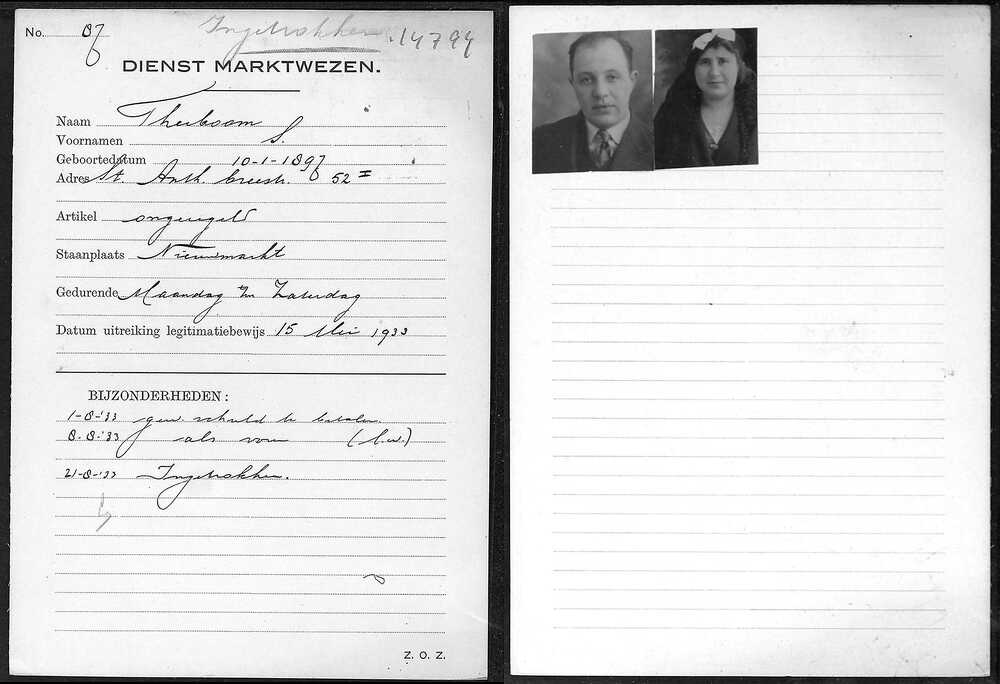 No. 87 Ingetrokken 14794
DIENST MARKTWEZEN.
Naam Theeboom
Voornamen S.
Geboortedatum 10-1-1897
Adres St. Anth. breestr. 52 II
Artikel ongeregeld
Staanplaats Nieuwmarkt
Gedurende Maandag t/m Zaterdag
Datum uitreiking legitimatiebewijs 15 Mei 1933
BIJZONDERHEDEN:
1-8-'33 gew. schuld te betalen.
8-8-'33 als voren (l.w.)
21-8-'33 Ingetrokken.
Z. O. Z.